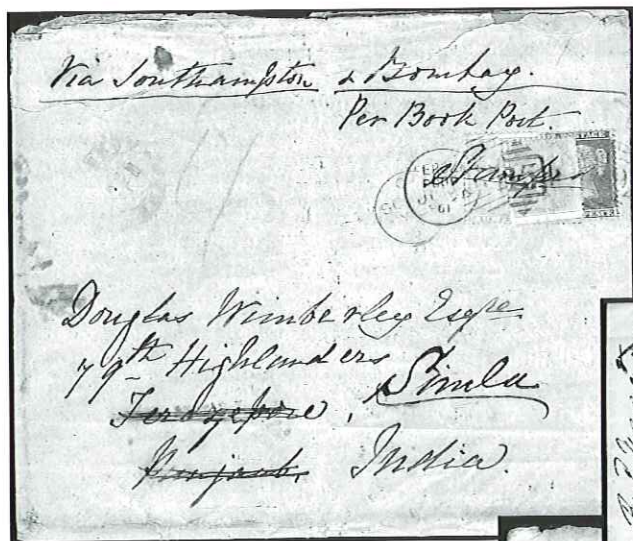 Via Southampton & Bombay.
Per Book Post.
Stamps
Douglas Wimberley Esqre
79th Highlanders
Ferozepore, Simla
Punjaub, India.